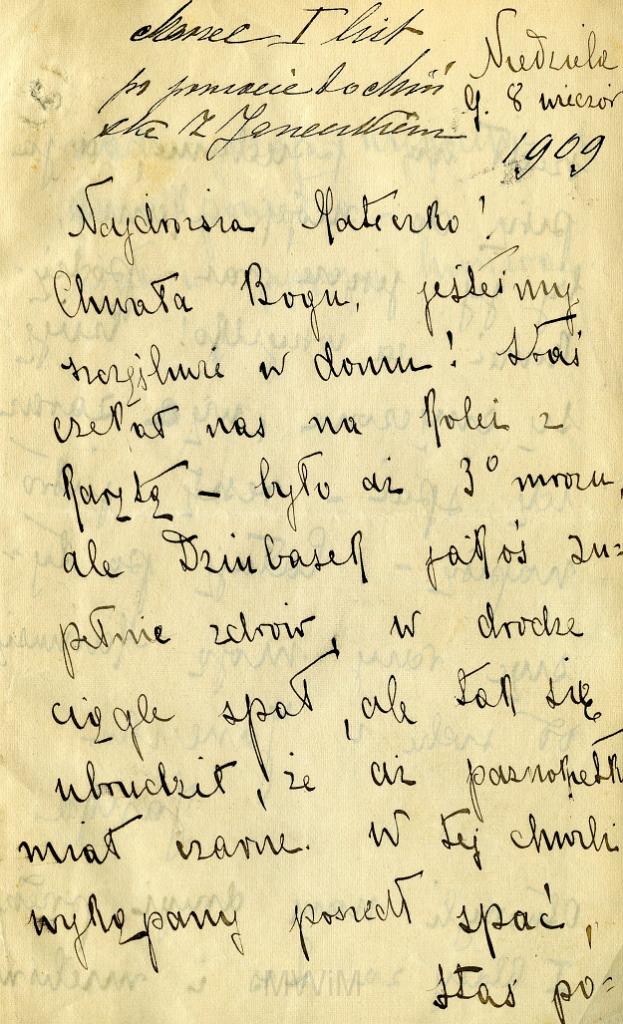 Marzec I list
po powrocie do chiń
ska z Janeczkiem
Niedziela
g. 8 wieczór
1909
Najdrozsza Mateczko!
Chwała Bogu, jesteśmy
szczęśliwie w domu! Staś
czekał nas na kolei z
karytą – było aż 3° mrozu,
ale Dziubasek jakoś zu=
pełnie zdrów, w drodze
ciągle spał, ale tak się
ubrudził, że aż paznokietki
miał czarne. W tej chwili
wykąpany poszedł spać,
Staś po=